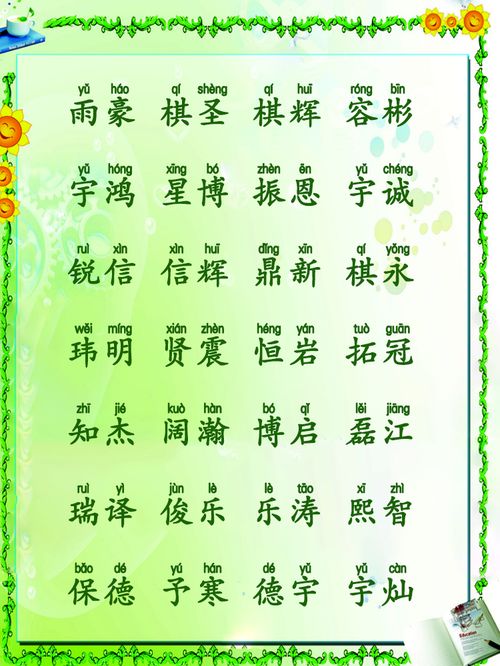 yǔ háo qí shèng qí huī róng bīn
雨豪 棋圣 棋辉 容彬
yǔ hóng xīng bó zhèn ēn yǔ chéng
宇鸿 星博 振恩 宇诚
ruì xìn xìn huī dǐng xīn qí yǒng
锐信 信辉 鼎新 棋永
wěi míng xián zhèn héng yán tuò guān
玮明 贤震 恒岩 拓冠
zhī jié kuò hàn bó qǐ lěi jiāng
知杰 阔瀚 博启 磊江
ruì yì jùn lè lè tāo xī zhì
瑞译 俊乐 乐涛 熙智
bǎo dé yú hán dé yǔ yǔ càn
保德 予寒 德宇 宇灿
Education